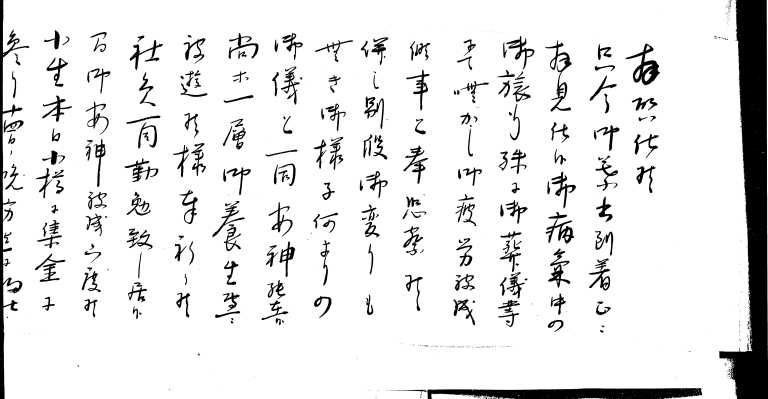 拝啓仕候
只今御葉書到着正ニ
拝見仕候御病気中の
御旅行殊に御葬儀等
嘸かし御疲労被成
候事と奉恐察候
併し別段御変りも
無き御様子何よりの
御儀と一同安神罷在候
尚ホ一層御養生専一
被遊候様奉祈候
社員一同勤勉致し居候
間御安神被成下度候
小生本日小樽に集金に
参り 晩方